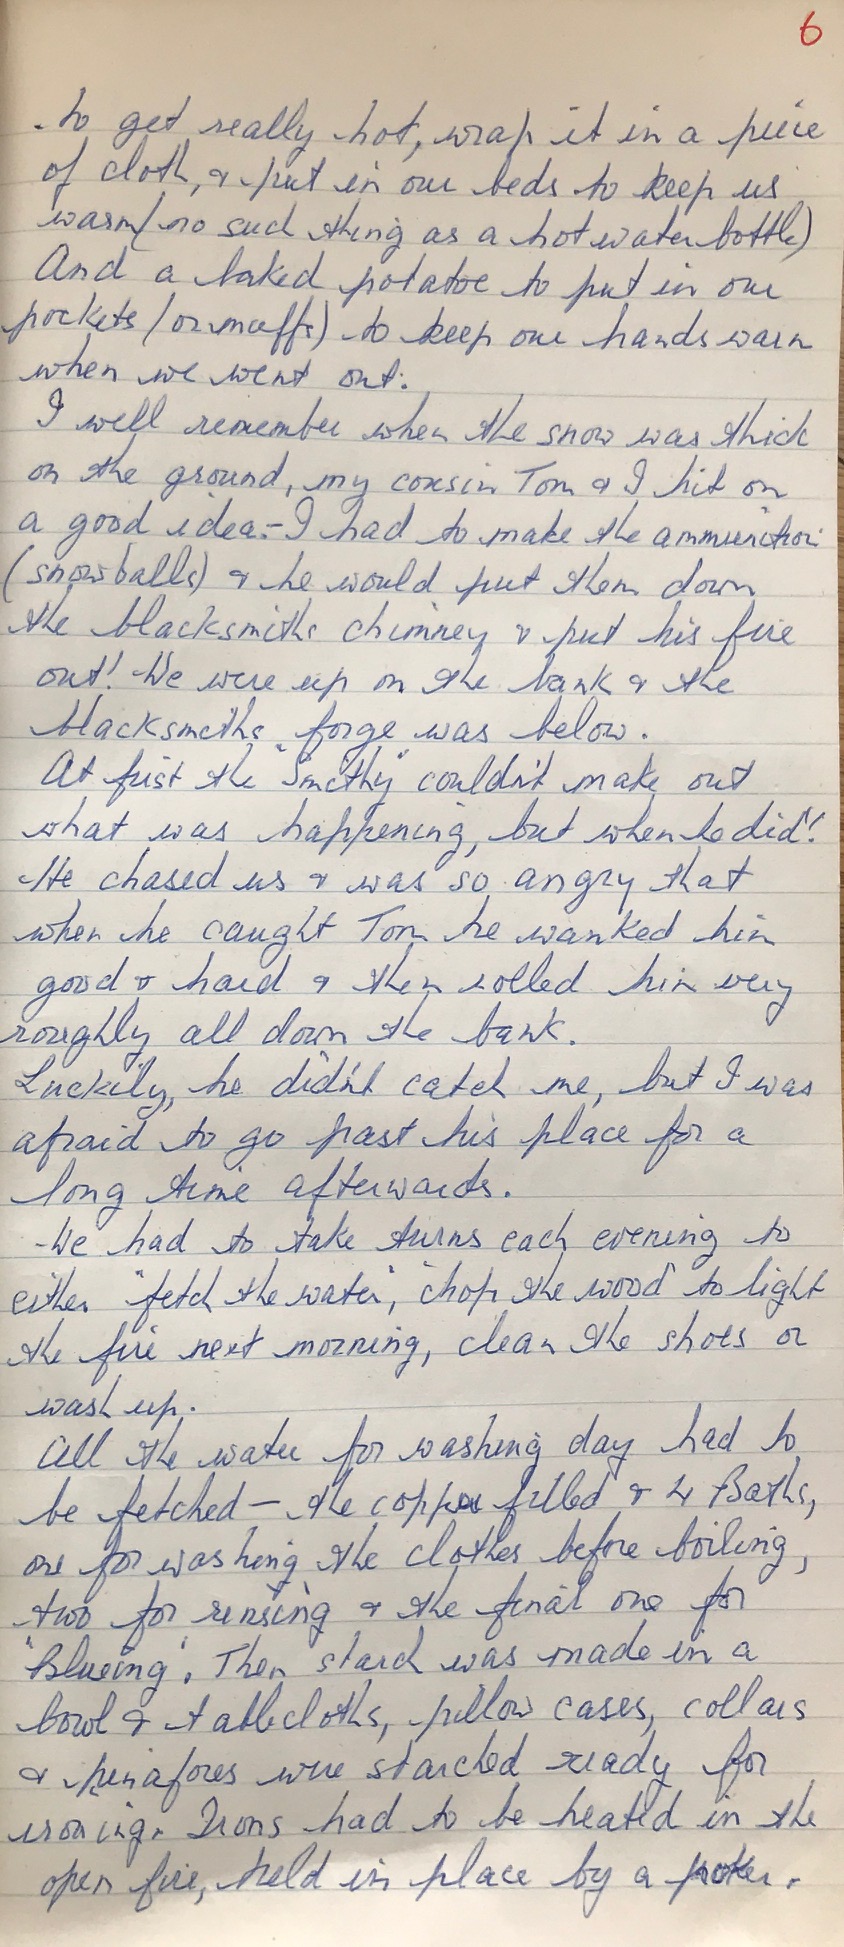 6
to get really hot, wrap it in a piece
of cloth, & put in our beds to keep us
warm (no such thing as a hot water bottle)
And a baked potatoe to put in our
pockets (or muffs) to keep our hands warm
when we went out.
I well remember when the snow was thick
on the ground, my cousin Tom & I hit on
a good idea:- I had to make the ammunition
(snowballs) & he would put them down
the blacksmiths chimney & put his fire
out! We were up on the bank & the
blacksmiths forge was below.
At first the "Smithy" couldn't make out
what was happening, but when he did!
He chased us & was so angry that
when he caught Tom he wanked him
good & hard & then rolled him very
roughly all down the bank.
Luckily, he didn't catch me, but I was
afraid to go past his place for a
long time afterwards.
We had to take turns each evening to
either "fetch the water", "chop the wood" to light
the fire next morning, clean the shoes or
wash up.
All the water for washing day had to
be fetched — the copper filled & 4 Baths,
one for washing the clothes before boiling,
two for rinsing & the final one for
"Blueing". Then starch was made in a
bowl & tablecloths, pillow cases, collars
& pinafores were starched ready for
ironing. Irons had to be heated in the
open fire, held in place by a poker.